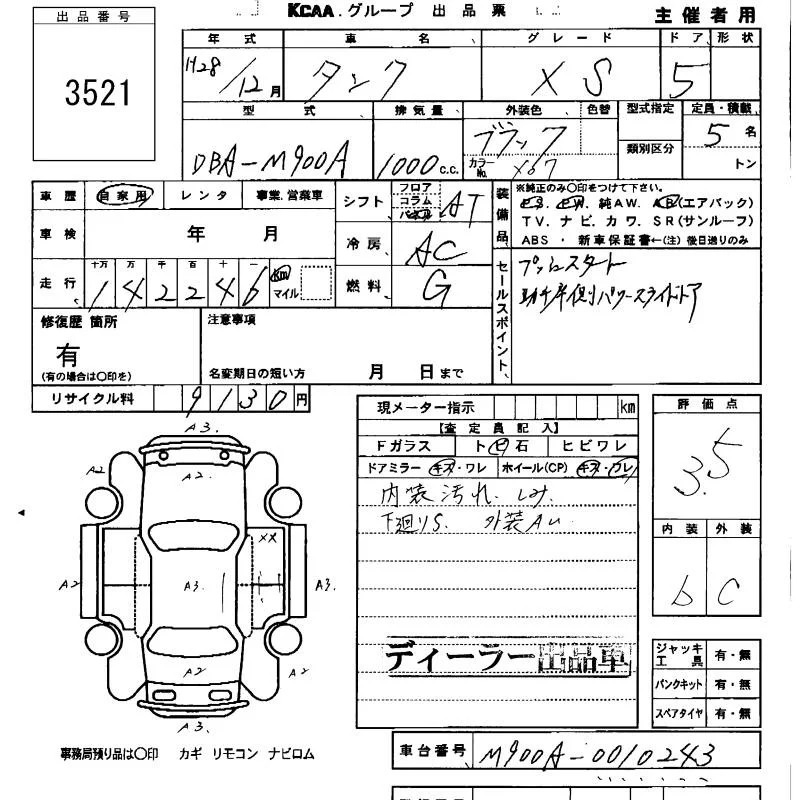 KCAA.グループ 出品票
主催者用
出品番号
3521
年式 車名 グレード ドア 形状
H28/12月 タンク XS 5
型式 排気量 外装色 色替 型式指定 定員・積載
DBA-M900A 1000c.c. ブラック 5名
カラーNo. X07 類別区分 トン
車歴 自家用 レンタ 事業.営業車
車検 年 月
走行 十万 万 千 百 十 一 km マイル
142246
シフト フロア コラム パネル AT
冷房 AC
燃料 G
装備品
※純正のみ○印をつけて下さい。
PS. PW. 純AW. AB(エアバック)
TV. ナビ. カワ. SR(サンルーフ)
ABS ・ 新車保証書←(注)後日送りのみ
セールスポイント
プッシュスタート
助手席側パワースライドドア
修復歴 箇所
有
(有の場合は○印を)
注意事項
名変期日の短い方 月 日まで
リサイクル料 9130円
現メーター指示 km
【査定員記入】
Fガラス トビ石 ヒビワレ
ドアミラー キズ・ワレ ホイール(CP) キズ・ワレ
内装汚れ.しみ.
下廻りS. 外装AU
ディーラー出品車
評価点
3.5
内装 外装
b C
ジャッキ工具 有・無
パンクキット 有・無
スペアタイヤ 有・無
A3.
A2
A2.
XX
A2 A3. A3.
A2
A2
A3.
事務局預り品は○印 カギ リモコン ナビロム
車台番号 M900A-0010243